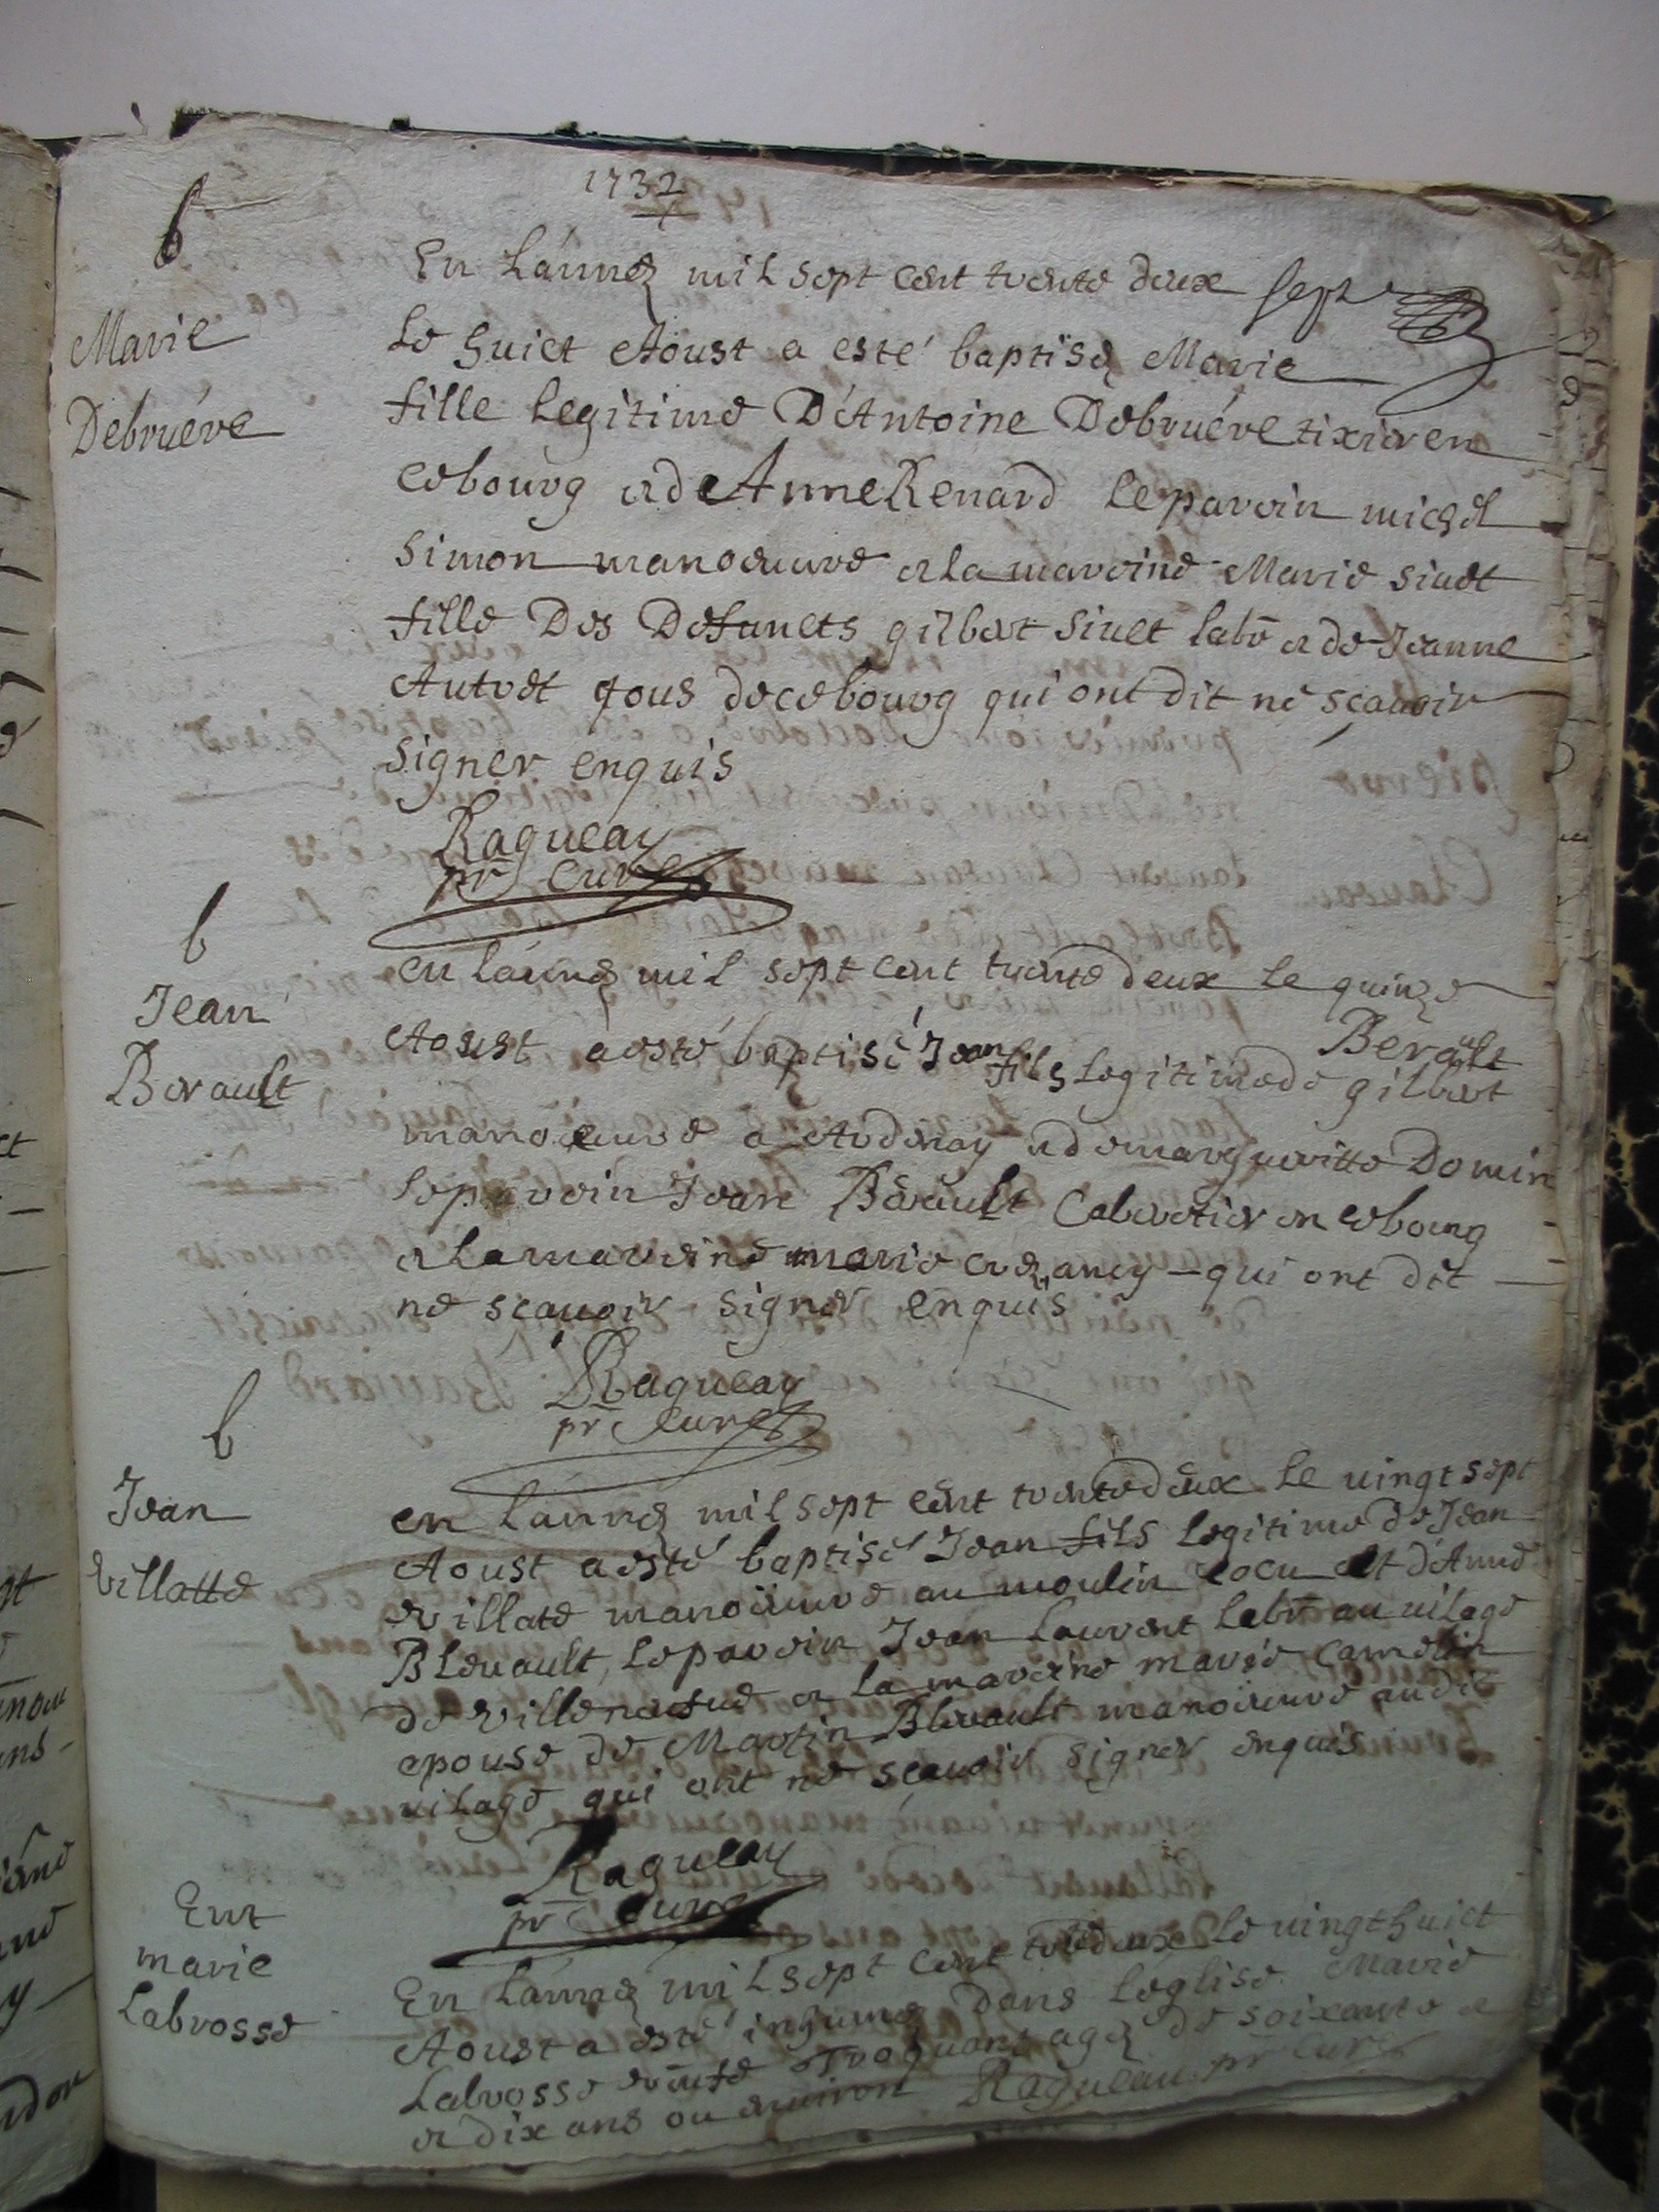 1732
b
Marie
Debruére
En Lánneé mil sept cent trente deux sept
Le huict Aoust a esté baptiseé Marie
fille legitime D'Antoine Debruére tixier en
ce bourg et de Anne Renard le parein michel
Simon manoeuvre et la mareine Marie Siuet
fille Des Defuncts gilbert Siuet labr et de Jeanne
Autret tous de ce bourg qui ont dit ne sçavoir
signer enquis
Ragueau
pr Curé
b
Jean
Berault
en lánneé mil sept cent trente deux le quinze
Aoust a esté baptisé Jean fils legitime de gilbert Berault
manoeuvre a Ardenay et de margueritte Domin
le parein Jean Berault Cabaretier en ce bourg
et la mareine marie crezancy qui ont dit
ne scavoir signer enquis
Ragueau
pr Curé
b
Jean
Villatte
en lánneé mil sept cent trente deux le vingt sept
Aoust a esté baptisé Jean fils legitime de Jean
Villate manoeuvre au moulin cocu et d'Anne
Blevault, le parein Jean Laurent labr au vilage
de Villeneufue et la mareine marie Camelin
epouse de Martin Blevault manoeuvre audit
vilage qui ont ne sçavoir signer enquis
Ragueau
pr Curé
Ent
marie
Labrosse
En lánneé mil sept cent trte deux le vingt huict
Aoust a esté inhumeé Dans leglise Marie
Labrosse ageé de soixante et
et dix ans ou environ Ragueau pr Curé